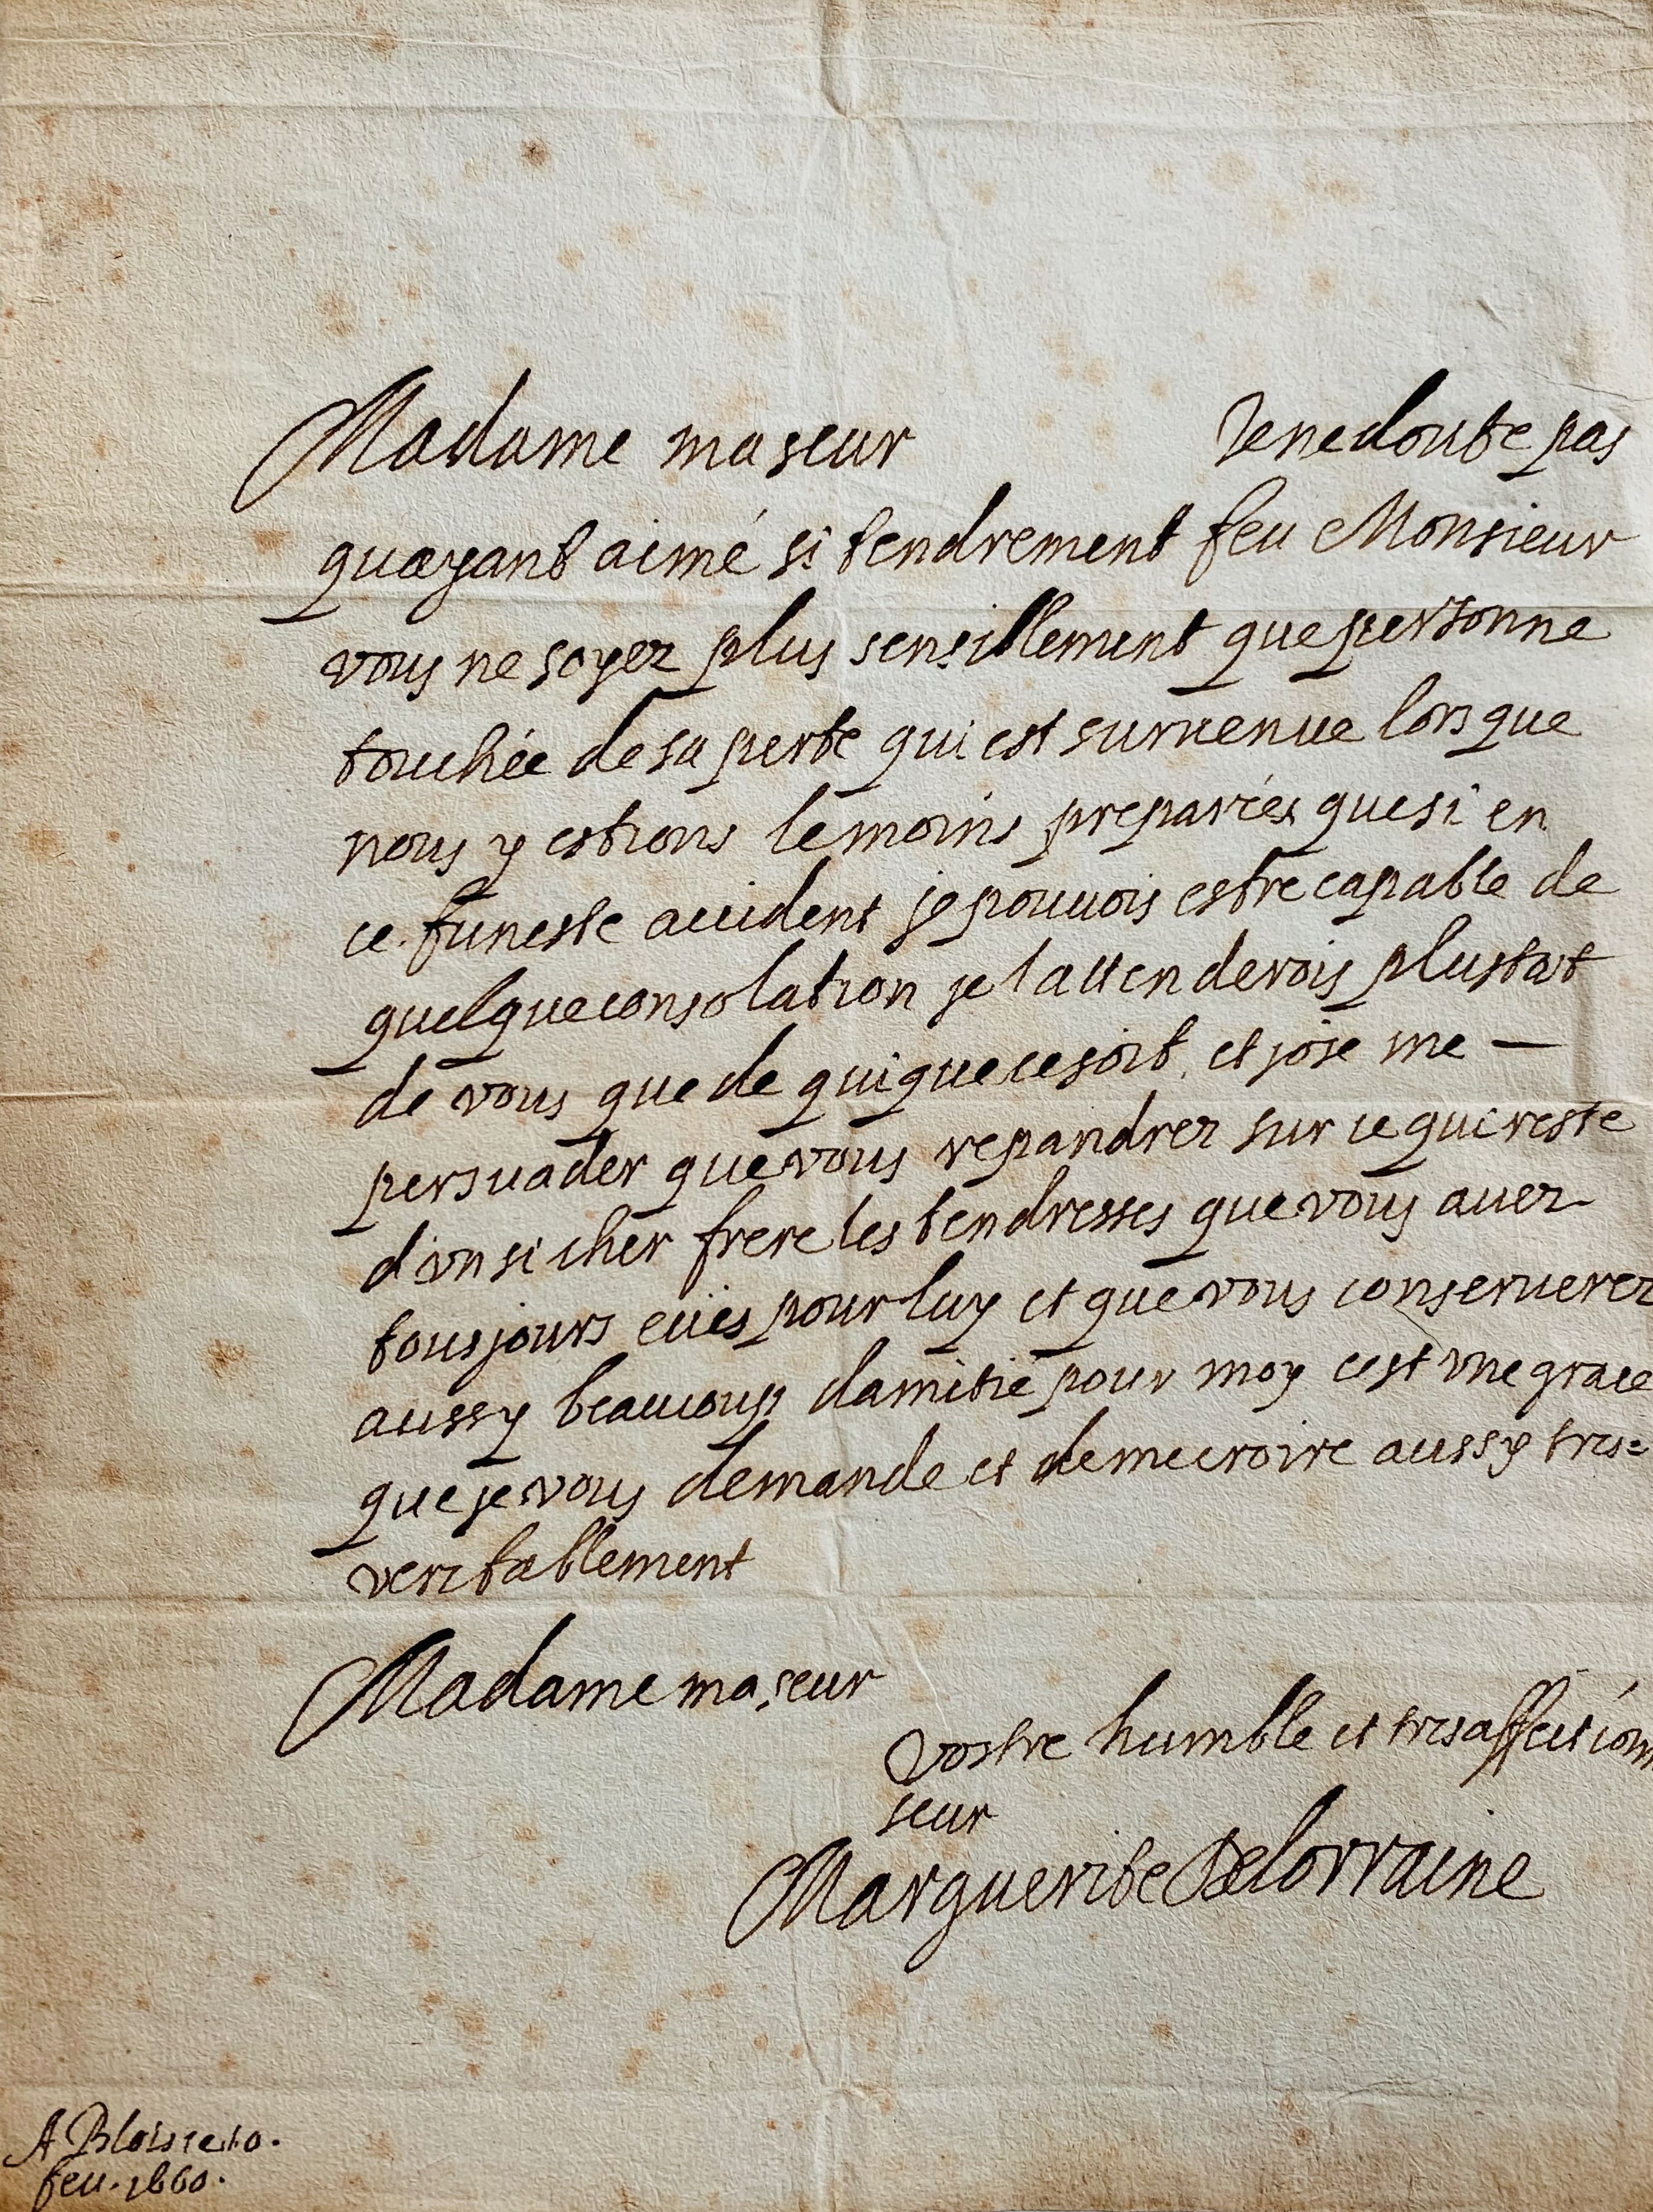 Madame ma seur Je ne doute pas
qu'ayant aimé si tendrement feu Monsieur
vous ne soyez plus sensillement que personne
touchée de sa perte qui est survenue lors que
nous y estions le moins preparées que si en
ce funeste accident je pouvois estre capable de
quelque consolation je l'attenderois plustost
de vous que de qui que ce soit. et jose me —
persuader que vous repandrez sur ce qui reste
d'vn si cher frere les tendresses que vous auez
tousjours euës pour luy et que vous conseruerez
aussy beaucoup damitié pour moy cest vne grace
que je vous demande et de me croire aussy tres=
veritablement
Madame ma seur
Vostre humble et tres affection
seur
Marguerite De lorraine
A Blois ce 10.
feu. 1660.